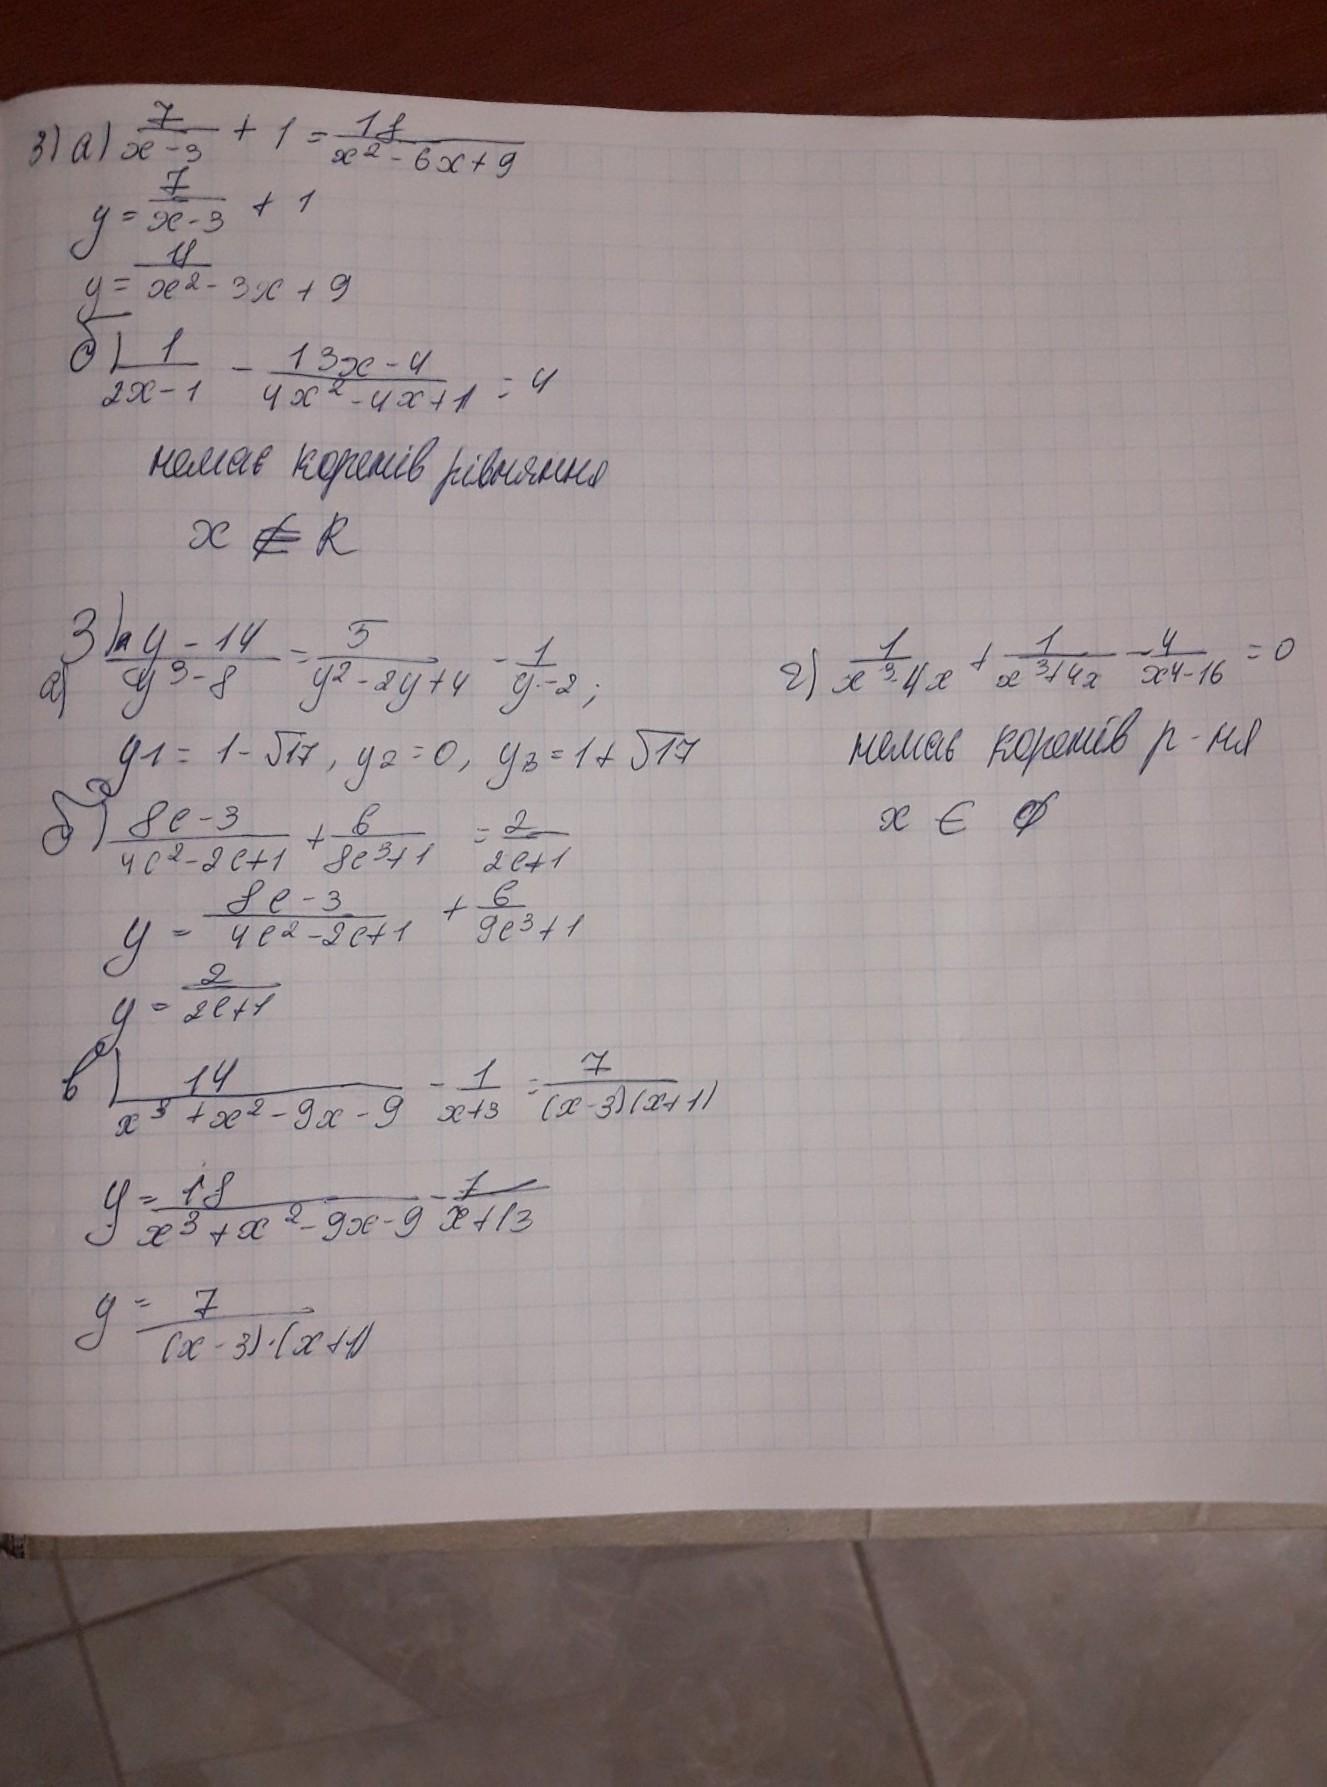 3) а) 7/(x-3) + 1 = 18/(x² - 6x + 9)
y = 7/(x-3) + 1
y = 18/x² - 3x + 9
б) 1/(2x-1) - (13x-4)/(4x²-4x+1) = 4
немає коренів рівняння
x ∉ R
3) а) (y-14)/(y³-8) = 5/(y²-2y+4) - 1/(y-2);
y1 = 1-√17, y2 = 0, y3 = 1+√17
б) (8e-3)/(4e²-2e+1) + 6/(8e³+1) = 2/(2e+1)
y = (8e-3)/(4e²-2e+1) + 6/(9e³+1)
y = 2/(2e+1)
в) 14/(x³+x²-9x-9) - 1/(x+3) = 7/((x-3)(x+1))
y = 18/(x³+x²-9x-9) - 7/(x+13)
y = 7/((x-3)·(x+1))
г) 1/(x³-4x) + 1/(x³+4x) - 4/(x4-16) = 0
немає коренів р-ня
x ∈ ∅